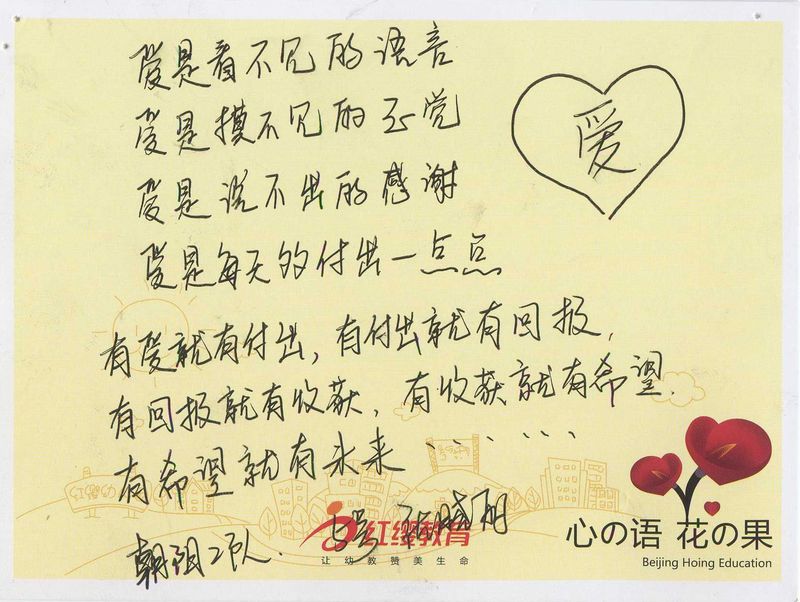 爱是看不见的语言
爱是摸不见的正觉
爱是说不出的感谢
爱是每天的付出一点点
爱
有爱就有付出，有付出就有回报，
有回报就有收获，有收获就有希望.
有希望就有未来......
朝阳2队. 5号
红缨教育
让幼教赞美生命
心の语 花の果
Beijing Hoing Education